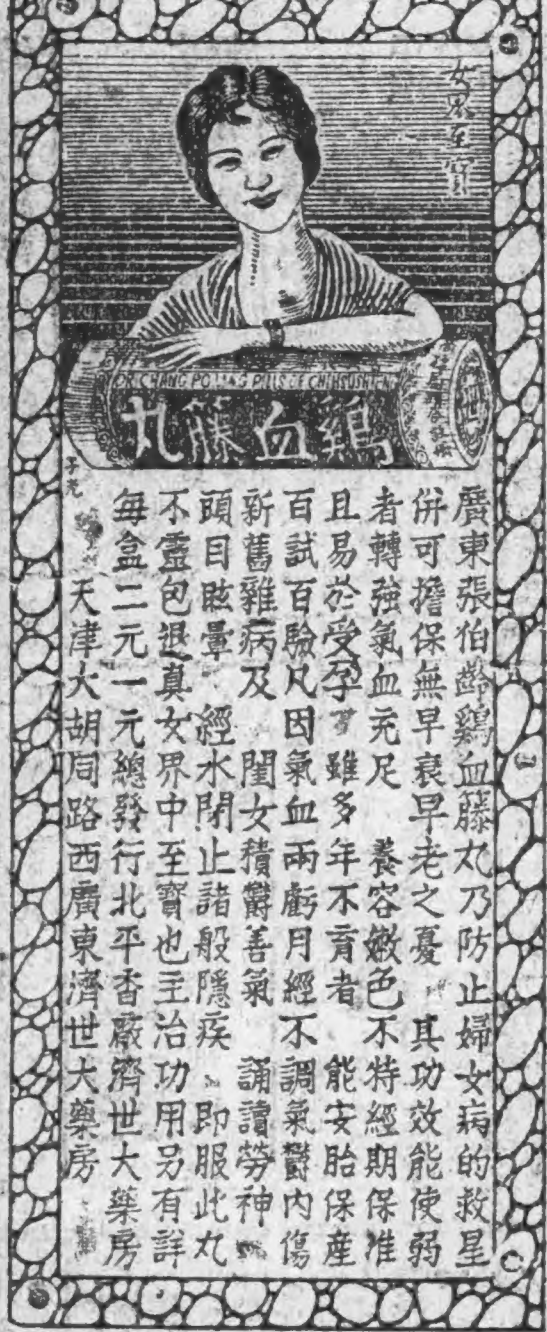 女界至寶
DR. CHANG PO LING PILLS OF CHIHSUSHENG
鷄血籐丸
廣東張伯齡鷄血籐丸乃防止婦女病的救星
併可擔保無早衰早老之憂 其功效能使弱
者轉強氣血充足 養容嫩色不特經期保准
且易於受孕 雖多年不育者 能安胎保產
百試百驗凡因氣血兩虧月經不調氣欝內傷
新舊雜病及 閨女積欝善氣 誦讀勞神
頭目眩暈 經水閉止諸般隱疾 即服此丸
不靈包退真女界中至寶也主治功用另有詳
每盒二元一元總發行北平香廠濟世大藥房
天津大胡同路西廣東濟世大藥房
子光